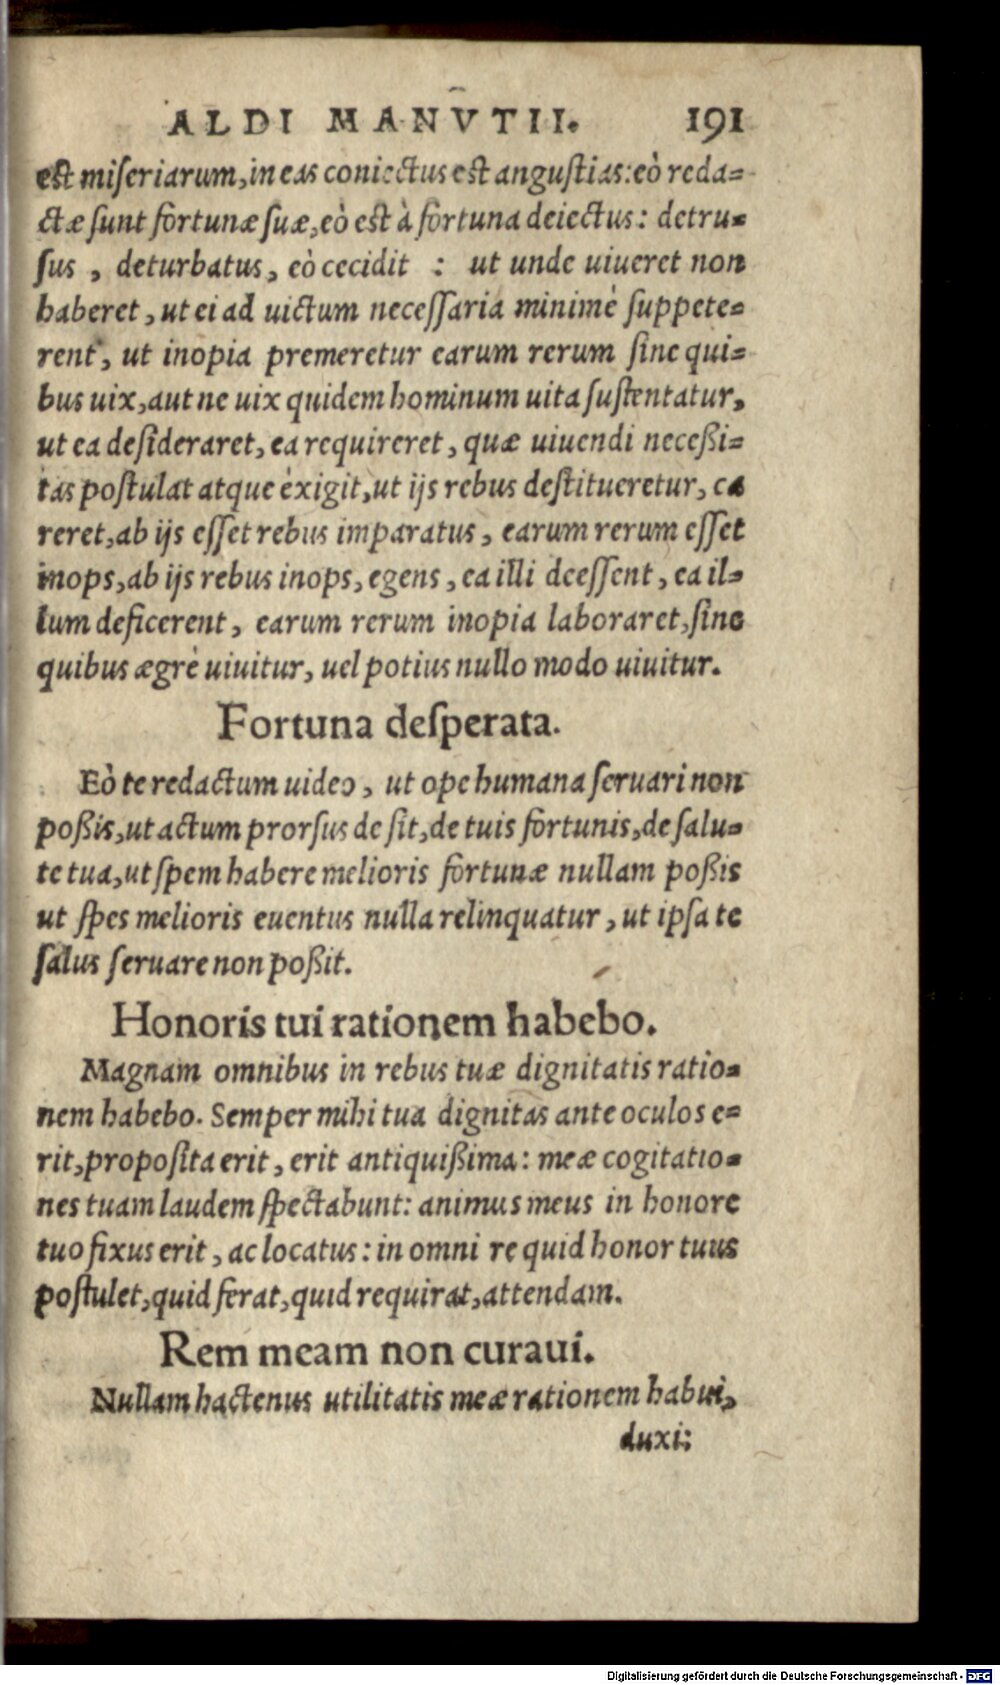 ALDI MANVTII. 191
est miſeriarum, in eas coniectus est anguſtias: eò reda-
ctæ ſunt fortunæ ſuæ, eò est à fortuna deiectus: detru-
ſus , deturbatus, eò cecidit : ut unde uiueret non
haberet, ut ei ad uictum neceſſaria minimè ſuppete-
rent, ut inopia premeretur earum rerum ſine qui-
bus uix, aut ne uix quidem hominum uita ſuſtentatur,
ut ea deſideraret, ea requireret, quæ uiuendi neceßi-
tas poſtulat atque èxigit, ut ijs rebus deſtitueretur, ca
reret, ab ijs eſſet rebus imparatus, earum rerum eſſet
inops, ab ijs rebus inops, egens, ea illi deeſſent, ea il-
lum deficerent, earum rerum inopia laboraret, ſine
quibus ægrè uiuitur, uel potius nullo modo uiuitur.
Fortuna deſperata.
Eò te redactum uideo, ut ope humana ſeruari non
poßis, ut actum prorſus de ſit, de tuis fortunis, de ſalu-
te tua, ut ſpem habere melioris fortunæ nullam poßis
ut ſpes melioris euentus nulla relinquatur, ut ipſa te
ſalus ſeruare non poßit.
Honoris tui rationem habebo.
Magnam omnibus in rebus tuæ dignitatis ratio-
nem habebo. Semper mihi tua dignitas ante oculos e-
rit, propoſita erit, erit antiquißima: meæ cogitatio-
nes tuam laudem ſpectabunt: animus meus in honore
tuo fixus erit, ac locatus: in omni re quid honor tuus
poſtulet, quid ferat, quid requirat, attendam.
Rem meam non curaui.
Nullam hactenus utilitatis meæ rationem habui,
duxi:
Digitalisierung gefördert durch die Deutsche Forschungsgemeinschaft - DFG